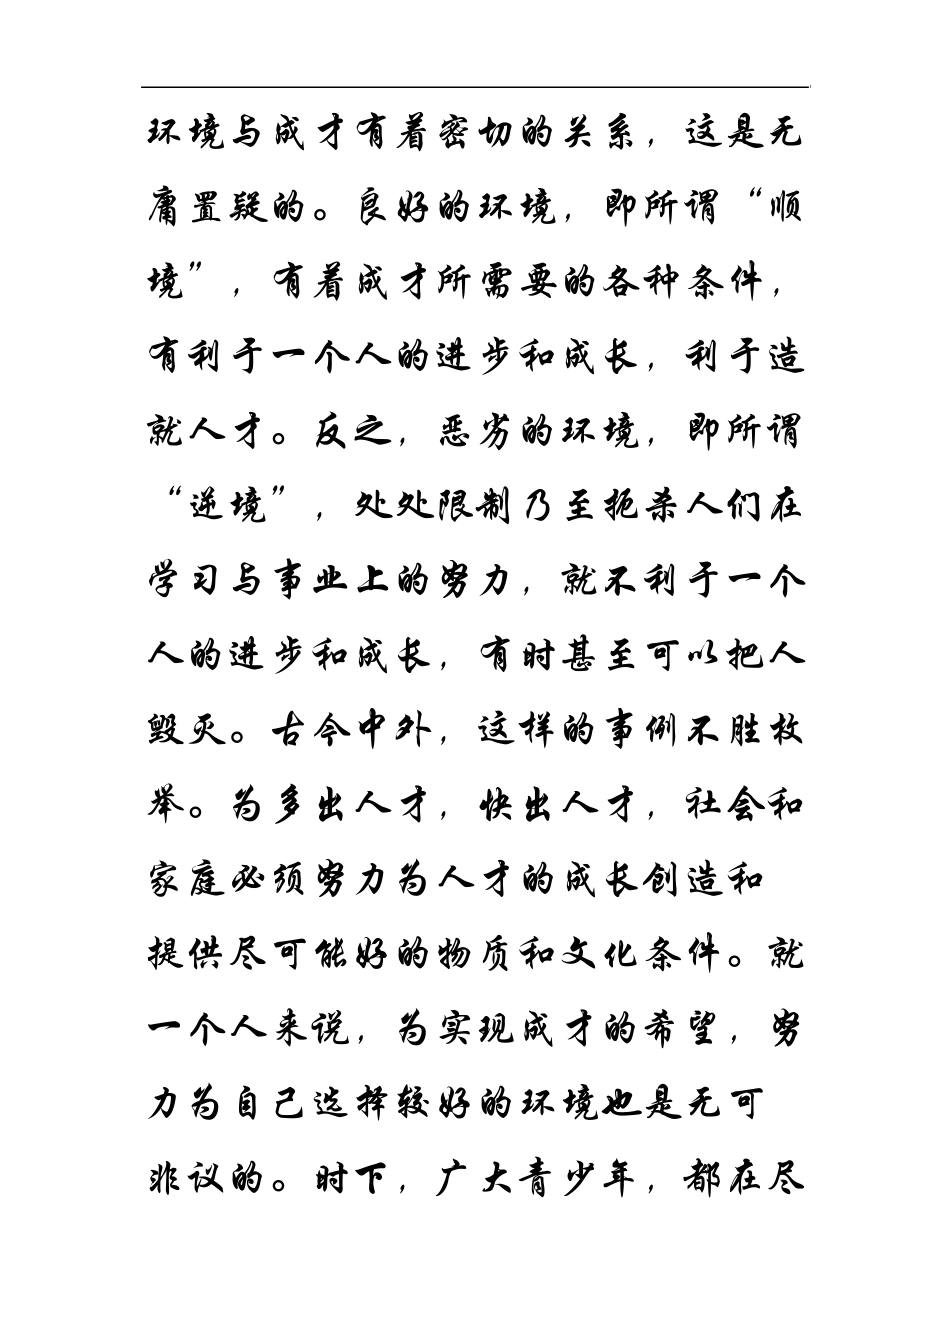 环境与成才有着密切的关系，这是无
庸置疑的。良好的环境，即所谓“顺
境”，有着成才所需要的各种条件，
有利于一个人的进步和成长，利于造
就人才。反之，恶劣的环境，即所谓
“逆境”，处处限制乃至扼杀人们在
学习与事业上的努力，就不利于一个
人的进步和成长，有时甚至可以把人
毁灭。古今中外，这样的事例不胜枚
举。为多出人才，快出人才，社会和
家庭必须努力为人才的成长创造和
提供尽可能好的物质和文化条件。就
一个人来说，为实现成才的希望，努
力为自己选择较好的环境也是无可
非议的。时下，广大青少年，都在尽